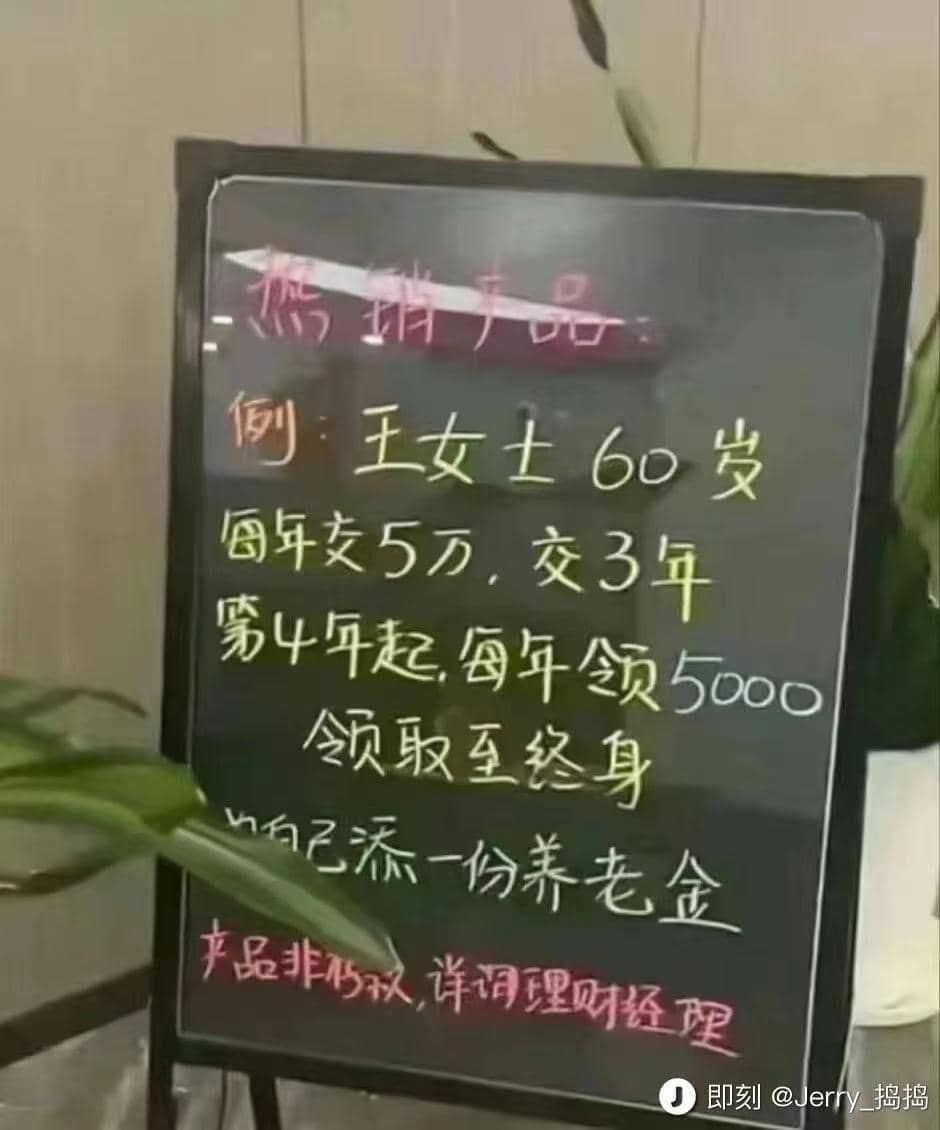 热销产品：
例：王女士60岁
每年交5万，交3年
第4年起，每年领5000
领取至终身
自己添一份养老金
产品非，详询理财经理
即刻 @Jerry_捣捣